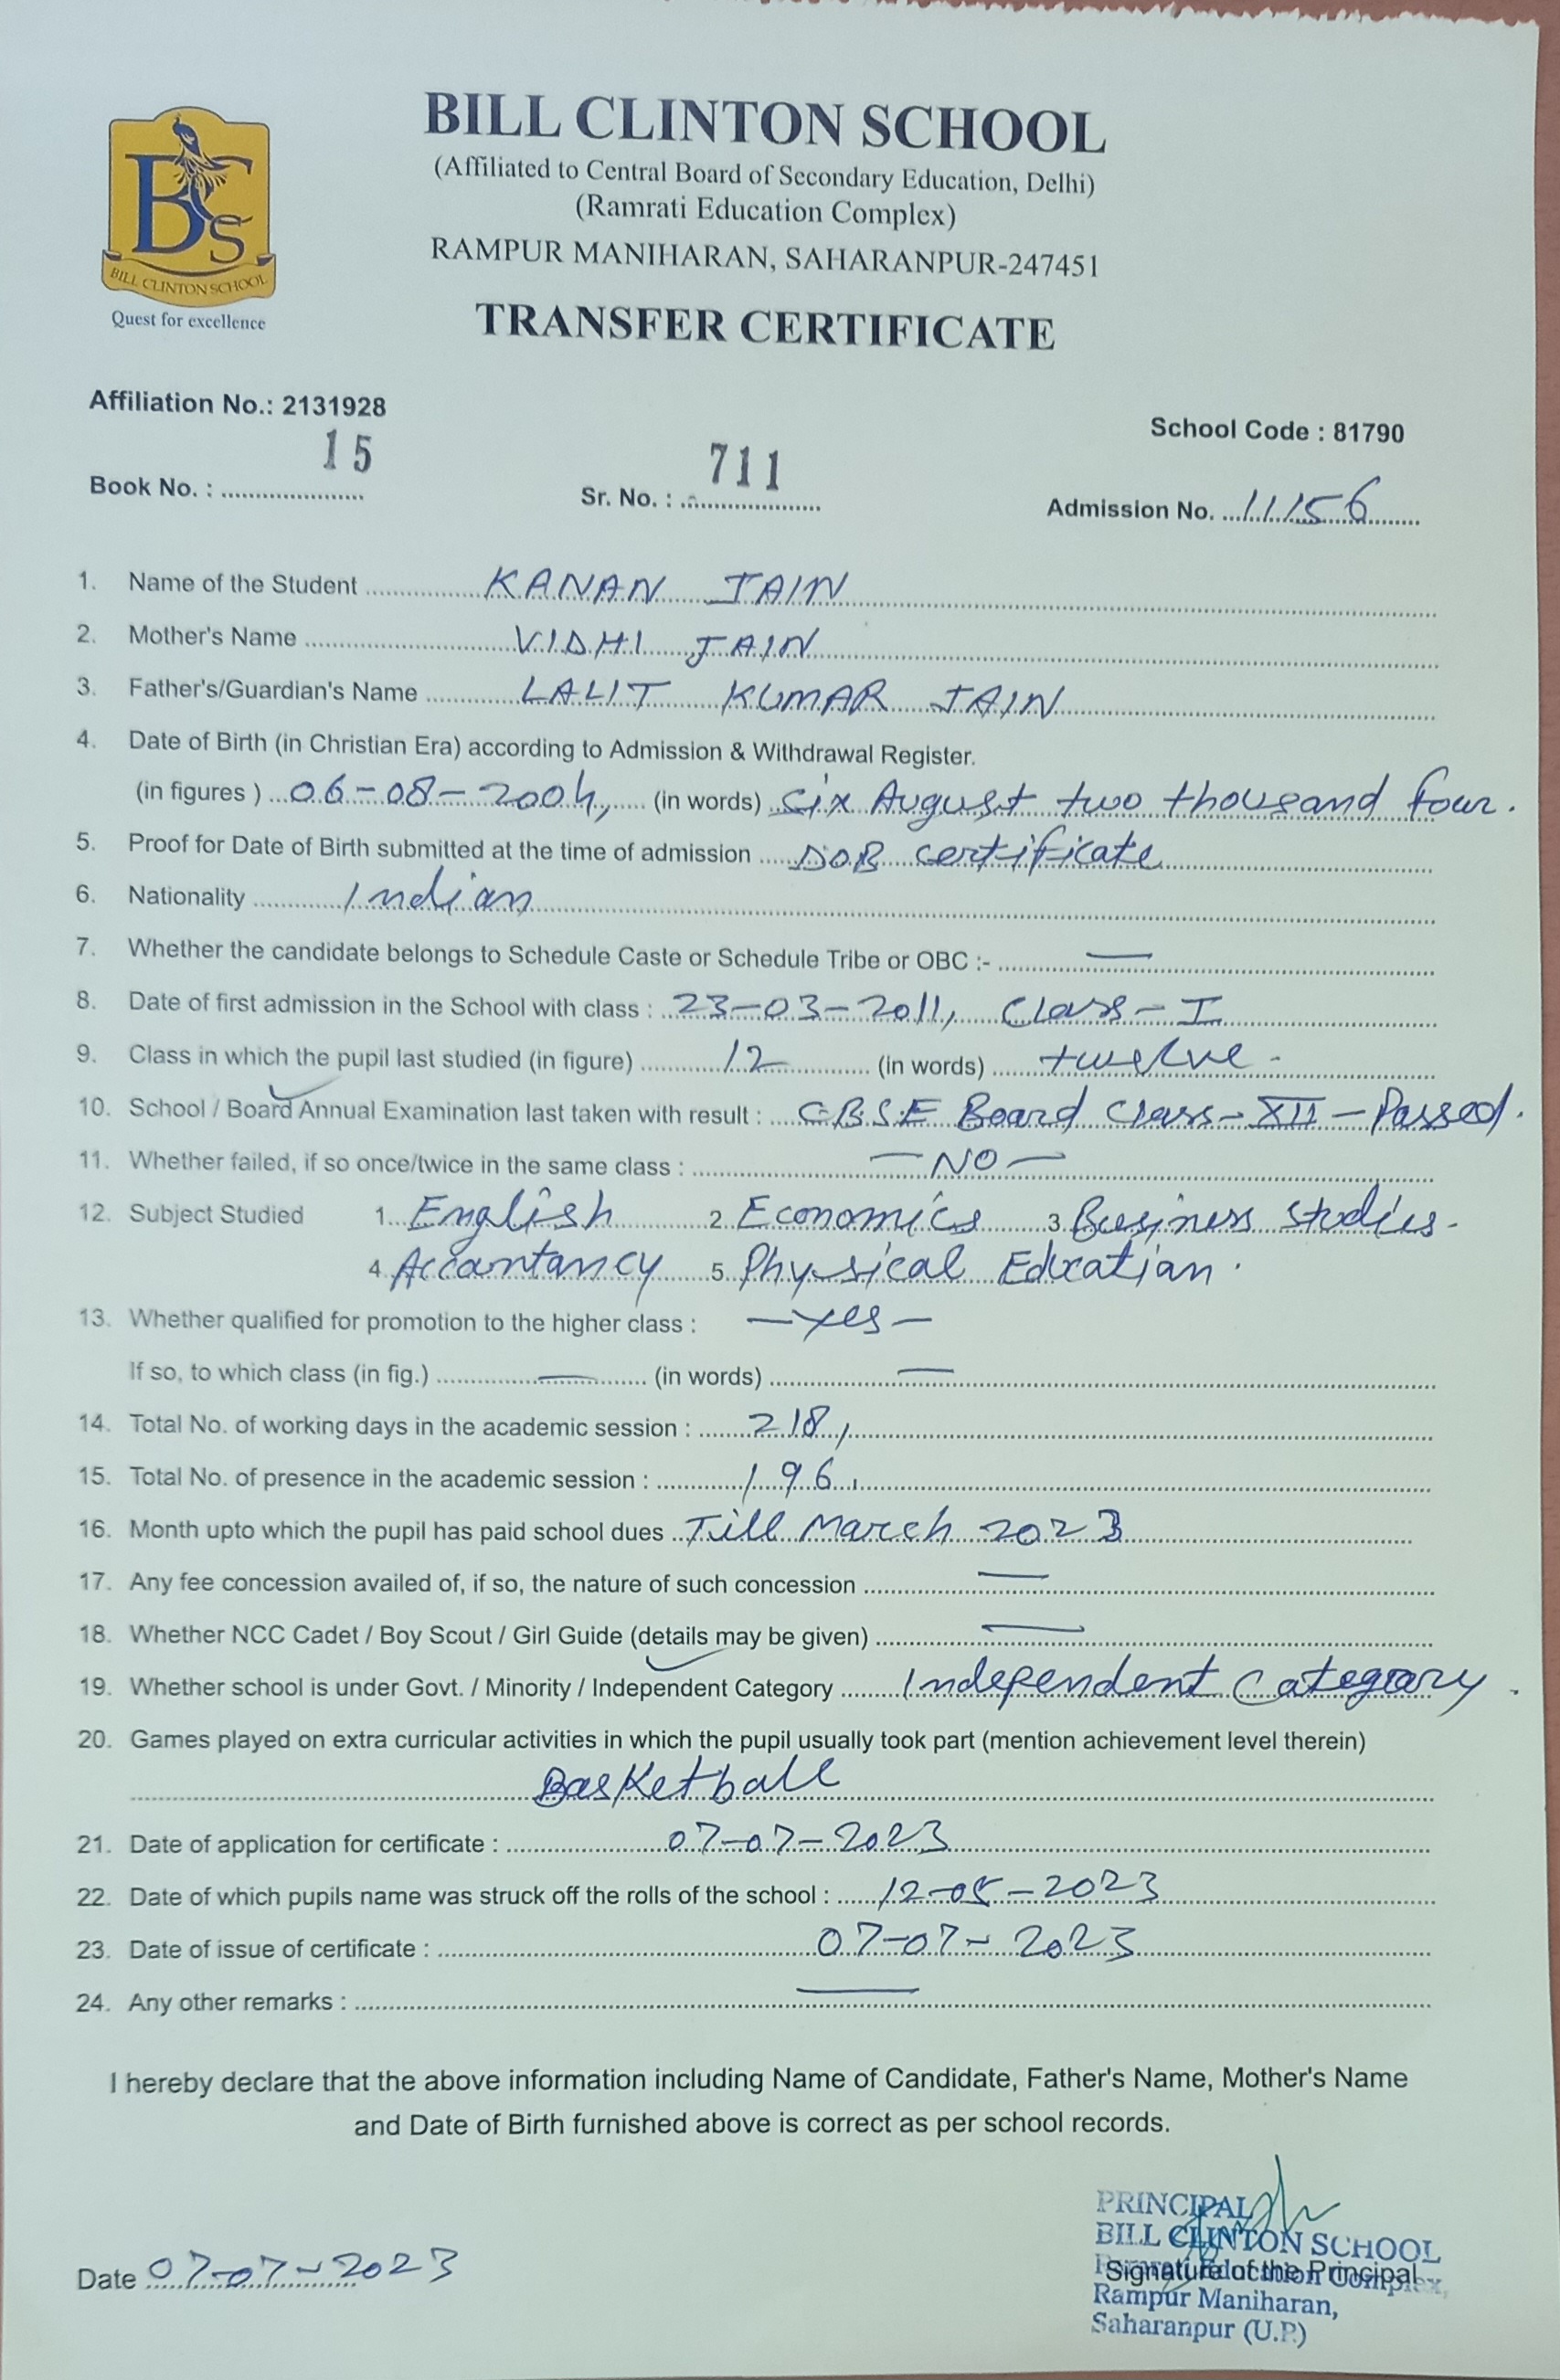 BILL CLINTON SCHOOL
(Affiliated to Central Board of Secondary Education, Delhi)
(Ramrati Education Complex)
RAMPUR MANIHARAN, SAHARANPUR-247451
BCS
BILL CLINTON SCHOOL
Quest for excellence
TRANSFER CERTIFICATE
Affiliation No.: 2131928
School Code : 81790
Book No. : 15 Sr. No. : 711 Admission No. 11156
1. Name of the Student KANAN JAIN
2. Mother's Name VIDHI JAIN
3. Father's/Guardian's Name LALIT KUMAR JAIN
4. Date of Birth (in Christian Era) according to Admission & Withdrawal Register.
(in figures ) 06-08-2004, (in words) Six August two thousand four.
5. Proof for Date of Birth submitted at the time of admission DOB certificate
6. Nationality Indian
7. Whether the candidate belongs to Schedule Caste or Schedule Tribe or OBC :- —
8. Date of first admission in the School with class : 23-03-2011, Class-I
9. Class in which the pupil last studied (in figure) 12 (in words) twelve -
10. School / Board Annual Examination last taken with result : C.B.S.E Board Class-XII-Passed.
11. Whether failed, if so once/twice in the same class : — NO —
12. Subject Studied 1. English 2. Economics 3. Business Studies.
4. Accountancy 5. Physical Education.
13. Whether qualified for promotion to the higher class : — Yes —
If so, to which class (in fig.) — (in words) —
14. Total No. of working days in the academic session : 218,
15. Total No. of presence in the academic session : 196,
16. Month upto which the pupil has paid school dues Till March 2023
17. Any fee concession availed of, if so, the nature of such concession —
18. Whether NCC Cadet / Boy Scout / Girl Guide (details may be given) —
19. Whether school is under Govt. / Minority / Independent Category Independent Category.
20. Games played on extra curricular activities in which the pupil usually took part (mention achievement level therein)
Basketball
21. Date of application for certificate : 07-07-2023
22. Date of which pupils name was struck off the rolls of the school : 12-05-2023
23. Date of issue of certificate : 07-07-2023
24. Any other remarks : —
I hereby declare that the above information including Name of Candidate, Father's Name, Mother's Name
and Date of Birth furnished above is correct as per school records.
PRINCIPAL
BILL CLINTON SCHOOL
Ramrati Education Complex,
Signature of the Principal
Rampur Maniharan,
Saharanpur (U.P.)
Date 07-07-2023